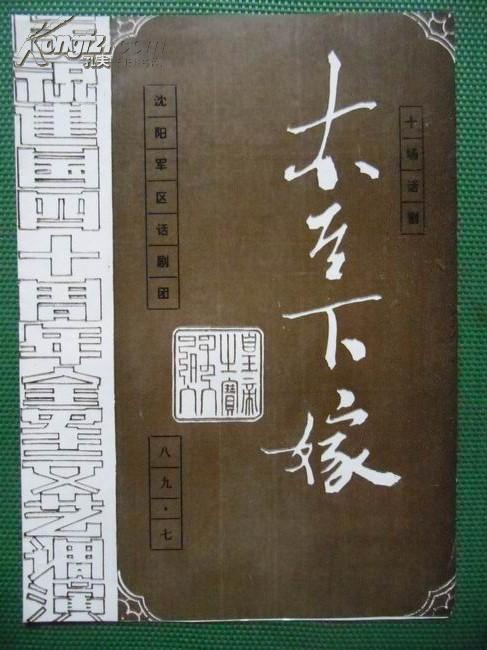 十场话剧
太后下嫁
皇帝之寶
沈阳军区话剧团
八九·七
建国四十周年全军文艺调演
Kongfz.com
孔夫